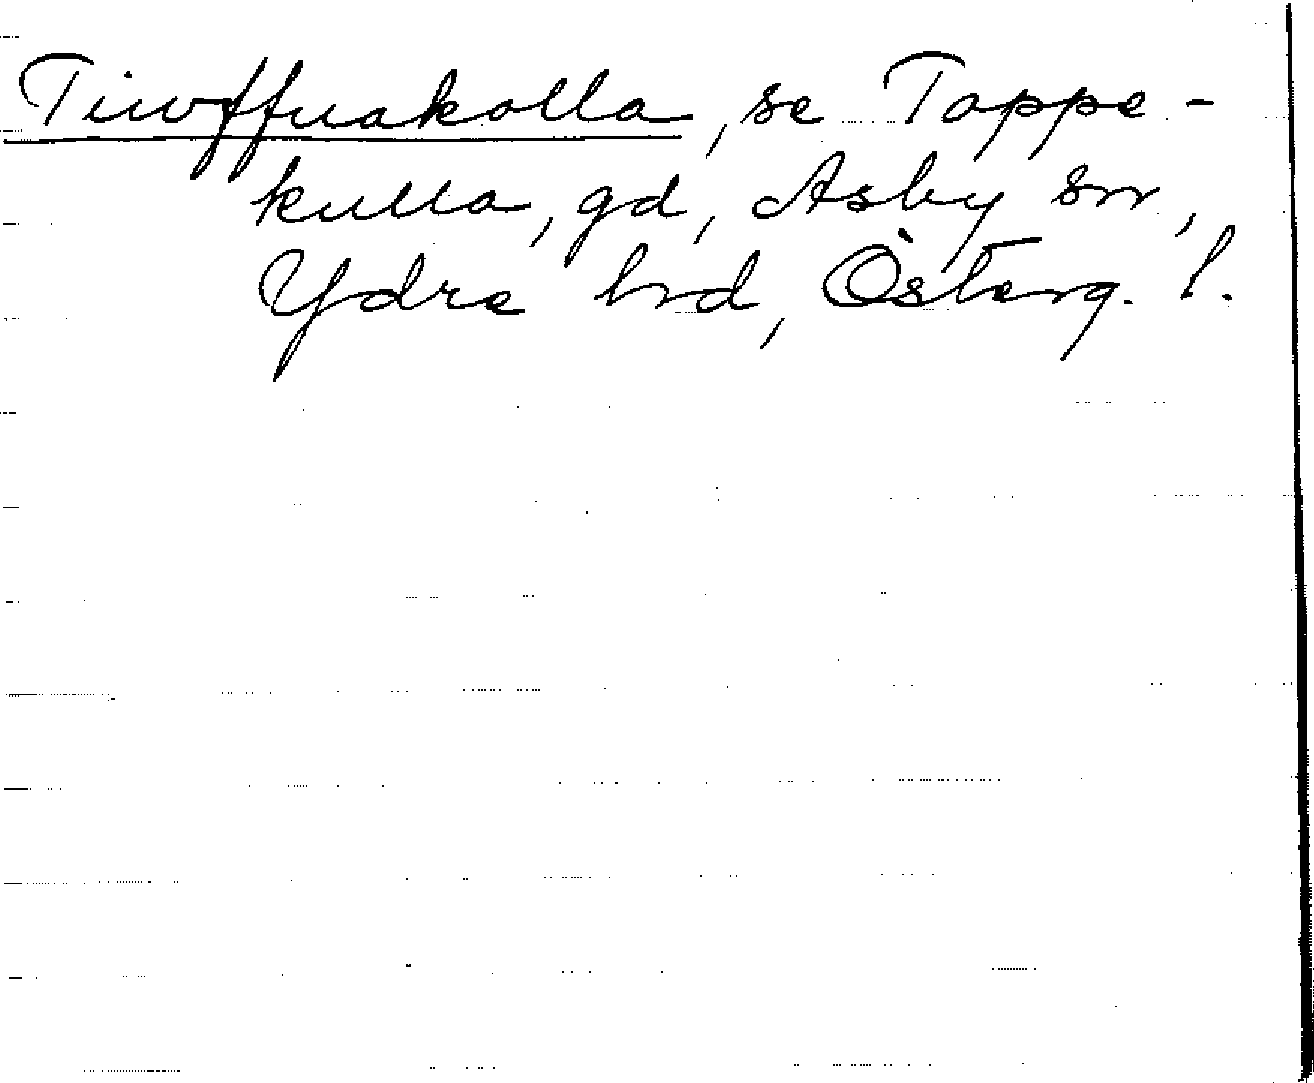 Tiwffuakolla, se Toppe-
kulla, gd, Asby sn,
Ydre hd, Österg. l.